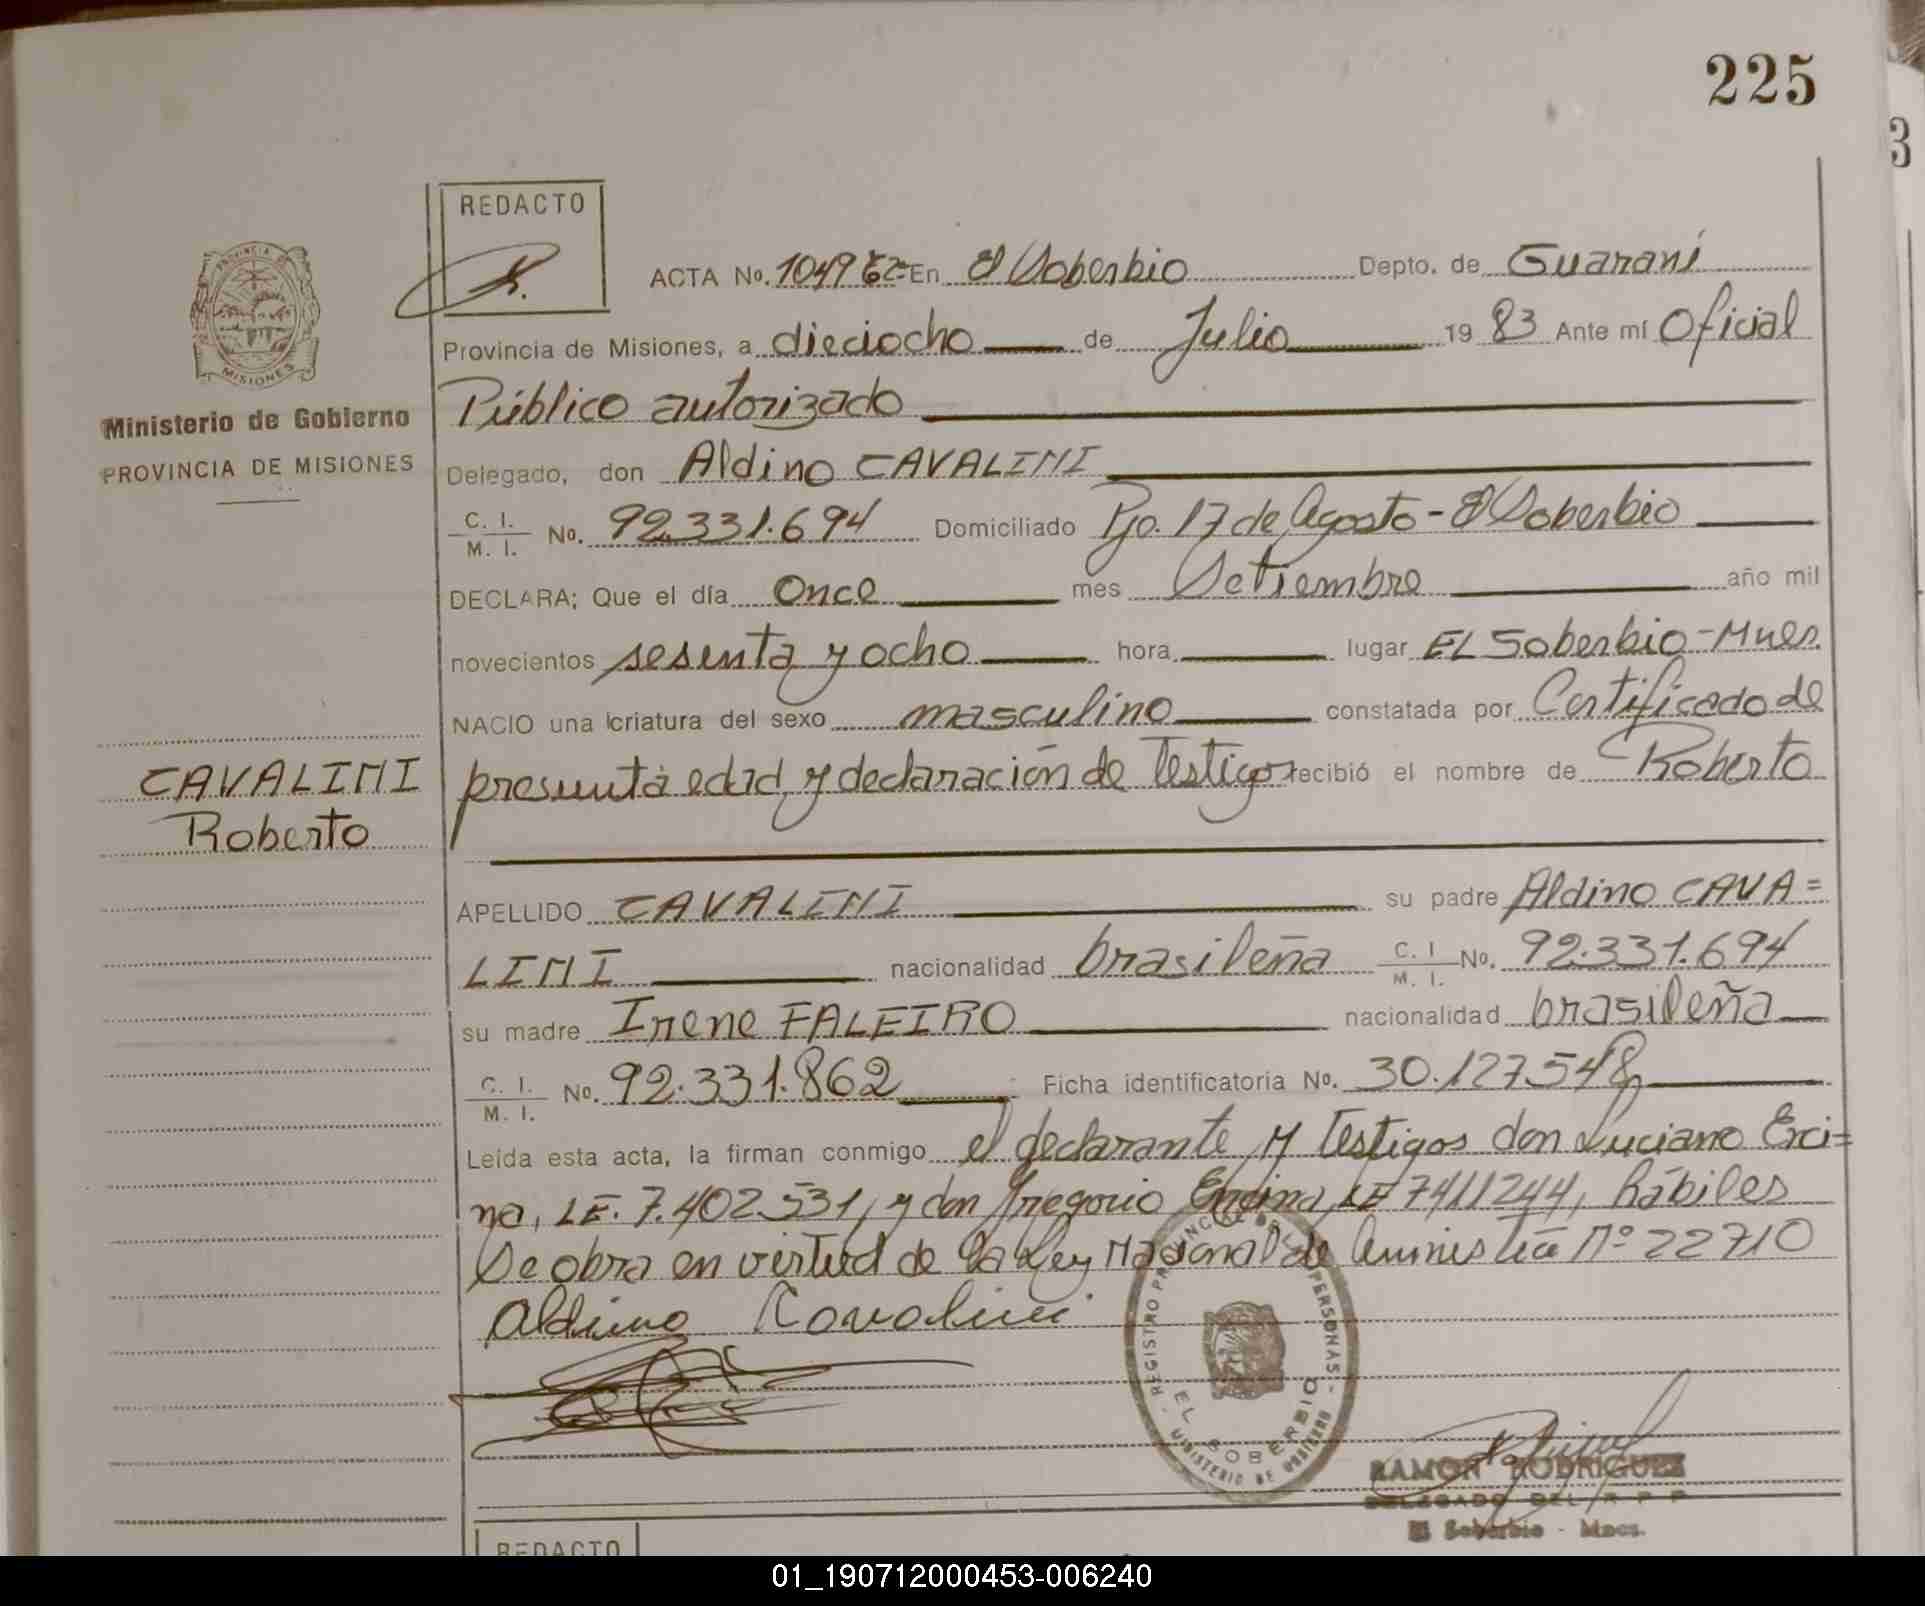 225
3
REDACTO
PROVINCIA DE
MISIONES
Ministerio de Gobierno
PROVINCIA DE MISIONES
ACTA No. 1049 En El Soberbio Depto. de Guaraní
Provincia de Misiones, a dieciocho de Julio 19 83 Ante mí Oficial
Público autorizado
Delegado, don Aldino CAVALINI
C. I. / M. I. No. 92.331.694 Domiciliado Pjo. 17 de Agosto - El Soberbio
DECLARA; Que el día Once mes Setiembre año mil
novecientos sesenta y ocho hora lugar EL Soberbio - Mnes.
NACIO una criatura del sexo masculino constatada por Certificado de
presunta edad y declaración de Testigos recibió el nombre de Roberto
CAVALINI
Roberto
APELLIDO CAVALINI su padre Aldino CAVA=
LINI nacionalidad brasileña C. I. / M. I. No. 92.331.694
su madre Irene FALEIRO nacionalidad brasileña
C. I. / M. I. No. 92.331.862 Ficha identificatoria No. 30.127.548
Leída esta acta, la firman conmigo el declarante y Testigos don Luciano Enci=
na, LE. 7.402.531, y don Gregorio Encina, LE 7411244, hábiles
Se obra en virtud de la Ley Nacional de Amnistía Nº 22710
Aldino Cavalini
REGISTRO PROVINCIAL DE LAS PERSONAS
EL SOBERBIO
MINISTERIO DE GOBIERNO
RAMON RODRIGUEZ
DELEGADO DEL R P P
El Soberbio - Mnes.
REDACTO
01_190712000453-006240